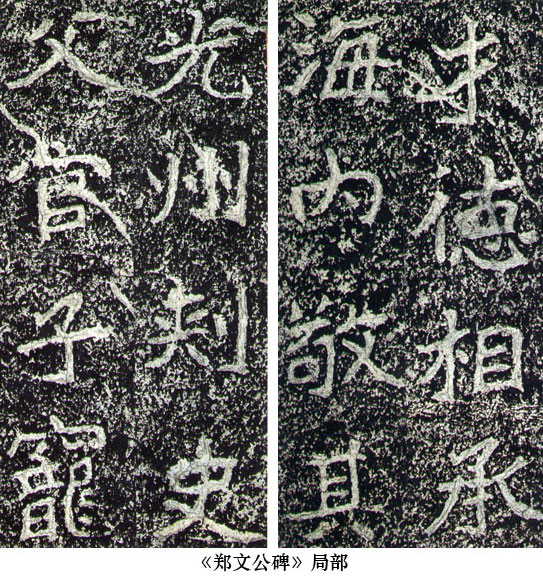 光州刺史
父官子寵
才德相承
海内敬其
《郑文公碑》局部